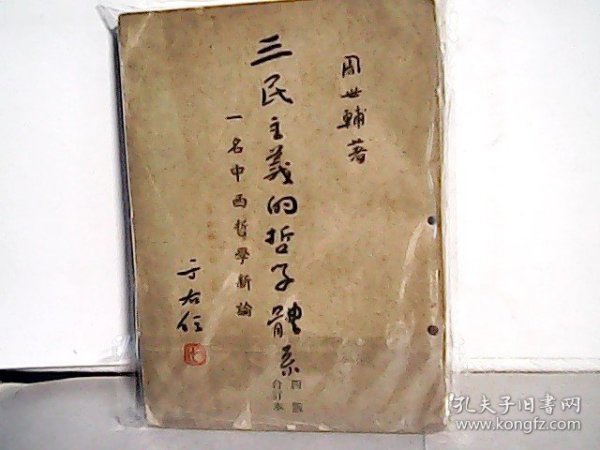 周世輔著
三民主義的哲学體系
一名中西哲學新論
于右任
四版
合訂本
孔夫子旧书网
www.kongfz.com